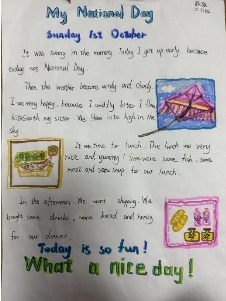 My National Day
Sunday 1st October
It was sunny in the morning. Today I get up early because
today was National Day.
Then the weather became windy and cloudy.
I was very happy, because I
with my sister. We flew kite high in the
sky.
It was time for lunch. The lunch was very
nice and yummy! There were some fish, some
meat and some soup for our lunch.
In the afternoon. We went shopping. We
bought some drinks, some bread and
for our dinner.
Today is so fun!
What a nice day!